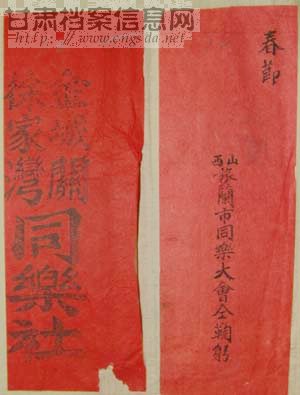 甘肃档案信息网
http://www.cngsda.net
春節
西山旅蘭市同樂大會仝鞠躬
金城關
徐家灣
同樂社